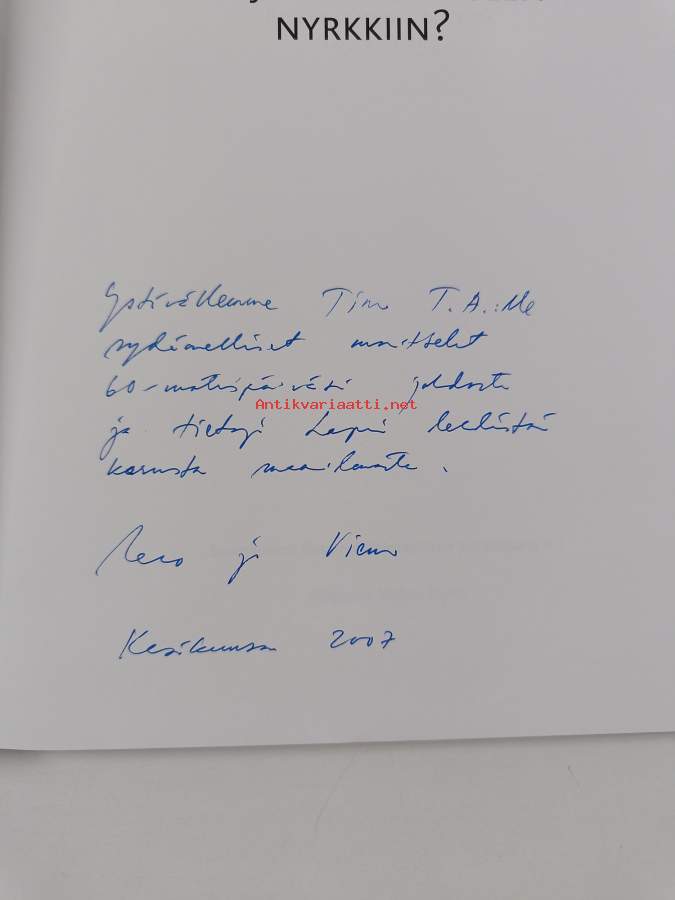 NYRKKIIN?
Ystävällemme Timo T.A.:lle
sydämelliset onnittelut
60-vuotispäiväsi johdosta
Antikvariaatti.net
ja tietoja Lapin
karusta maailmasta.
ja
Kesäkuussa 2007